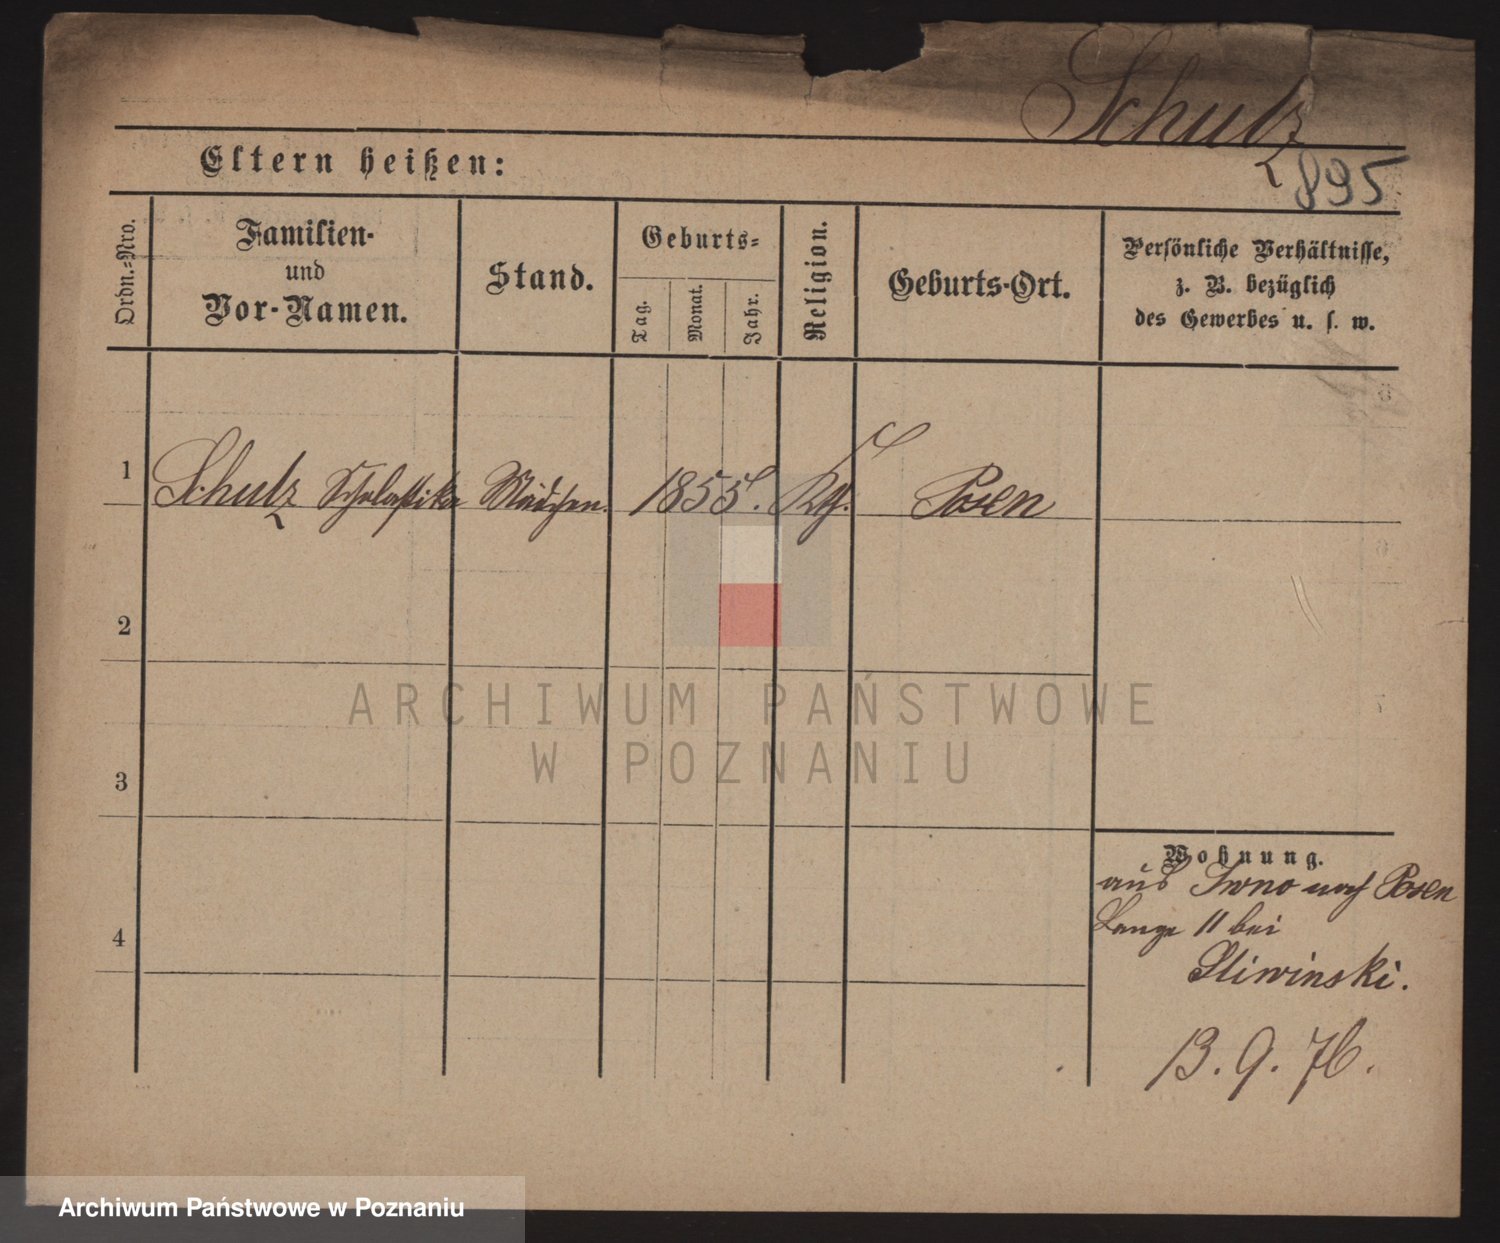 Schulz
895
Eltern heißen:
Ordn.=Nro.
Familien-
und
Vor-Namen.
Stand.
Geburts=
Tag.
Monat.
Jahr.
Religion.
Geburts-Ort.
Persönliche Verhältnisse,
z. B. bezüglich
des Gewerbes u. s. w.
1 Schulz Scholastika Mädchen. 1855. Kth. Posen
2
3
4
Wohnung.
aus Iwno nach Posen
Lange 11 bei
Sliwinski.
13. 9. 76.
ARCHIWUM PAŃSTWOWE
W POZNANIU
Archiwum Państwowe w Poznaniu